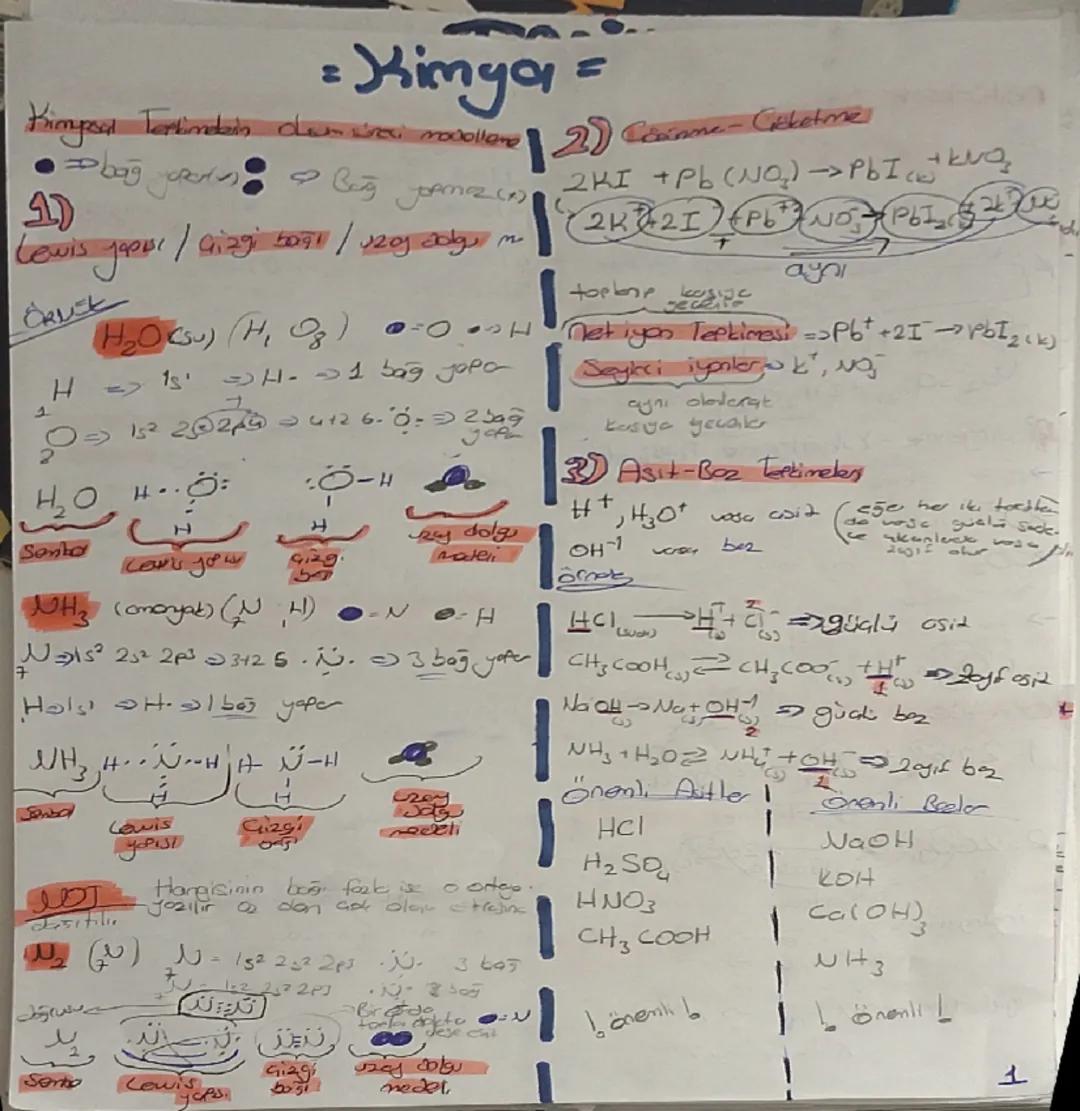 = Kimya =
Kimyasal
● ⇒ bağ yapar(ın) : ⇒ Bağ yapmaz (x)
1)
Lewis yapısı / Çizgi bağı / uzay dolgu m
ÖRNEK
H₂O (su) (₁H, O₈) ●=O ●=> H
₁H => 1s¹ => H· => 1 bağ yapar
₈O => 1s² 2s² 2p⁴ => 4+2 6 ·Ö: => 2 bağ yapar
H₂O H··Ö: :Ö-H
H H
Sembol Lewis yapısı Çizgi bağı uzay dolgu modeli
NH₃ (amonyak) (₇N ₁H) ●=N ●=H
₇N => 1s² 2s² 2p³ => 3+2 5 ·N̈· => 3 bağ yapar
H => 1s¹ => H· => 1 bağ yapar
NH₃ H··N̈··H H-N̈-H
H H
Sembol Lewis yapısı Çizgi bağı uzay dolgu modeli
NOT Hangisinin bağı fazla ise o ortaya
yazılır az olan çok olanın etrafına
dağıtılır
N₂ (₇N) ₇N = 1s² 2s² 2p³ ·N̈· 3 bağ
₇N = 1s² 2s² 2p³ ·N̈· 3 bağ
doğrusu N̈⋮⋮N̈
●=N
N₂ ·N̈· ·N̈· N̈≡N̈
Sembol Lewis yapısı Çizgi bağı uzay dolgu model
2) Çözünme-Çökelme
2KI + Pb(NO₃) → PbI₂(k) + KNO₃
2K⁺ + 2I⁻ + Pb⁺² NO₃⁻ → PbI₂(k) + 2K⁺
aynı
toplanıp karşıya geçenler
Net iyon Tepkimesi => Pb⁺ + 2I⁻ → PbI₂(k)
Seyirci iyonlar => K⁺, NO₃⁻
aynı olalarak
karşıya geçenler
3) Asit-Baz Tepkimeleri
H⁺, H₃O⁺ varsa asit
OH⁻¹ varsa baz
(eğer her iki tarafta
da varsa güçlü sadece
çıkanlarda varsa
zayıf olur
örnek
HCl(suda) → H⁺(s) + Cl⁻(s) => güçlü asit
CH₃COOH(s) ⇄ CH₃COO⁻(s) + H⁺(s) => zayıf asit
NaOH(s) → Na + OH⁻¹(s) => güçlü baz
NH₃ + H₂O ⇄ NH₄⁺(s) + OH⁻(s) => zayıf baz
Önemli Asitler
HCl
H₂SO₄
HNO₃
CH₃COOH
! önemli !
Önemli Bazlar
NaOH
KOH
Ca(OH)₂
NH₃
! önemli !
1